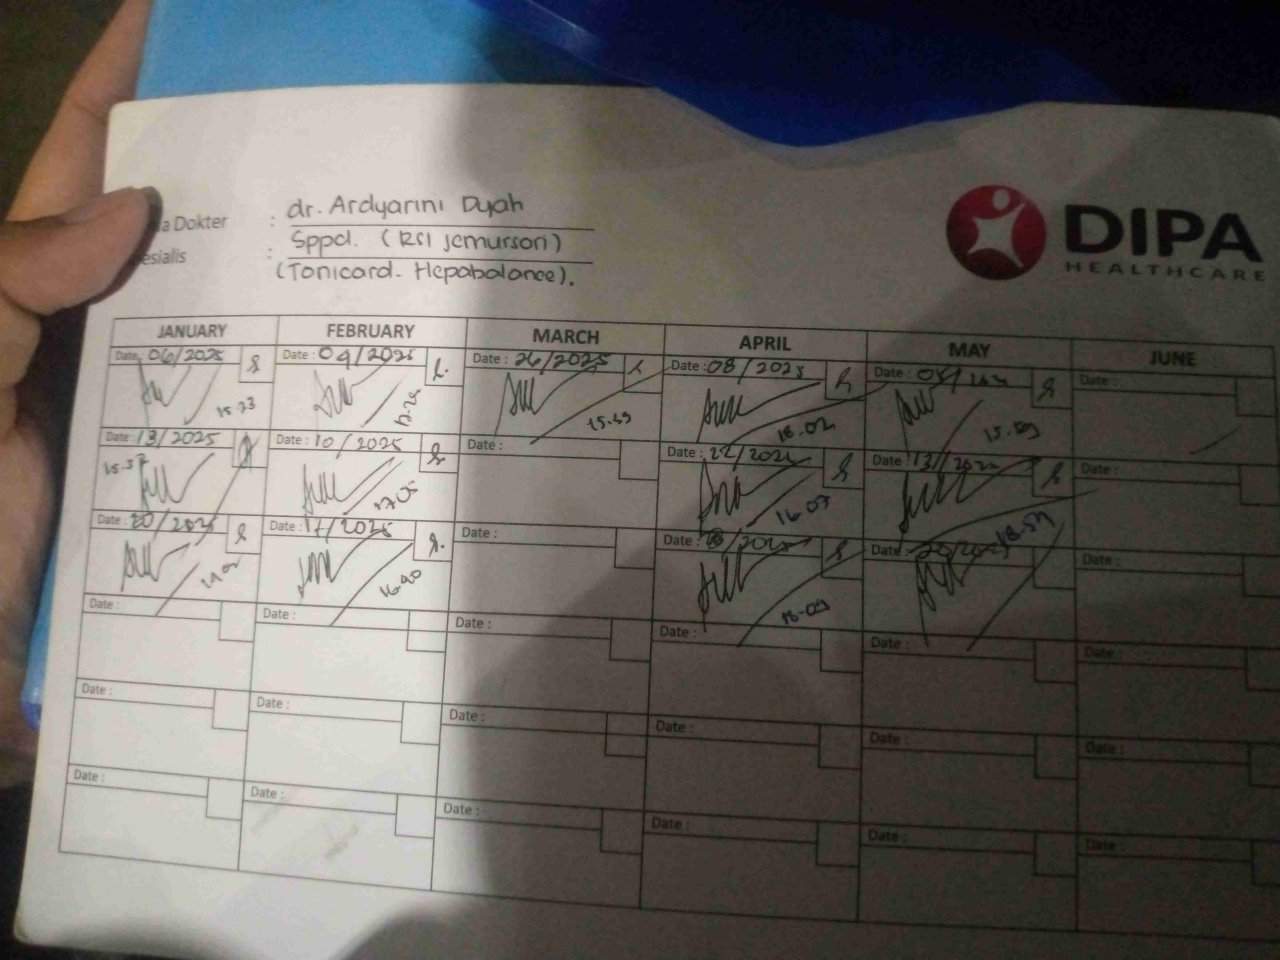 a Dokter : dr. Ardyarini Dyah
esialis : Sppd. (RSI jemurson)
(Tonicard. Hepabalance).
DIPA
HEALTHCARE
JANUARY FEBRUARY MARCH APRIL MAY JUNE
Date: 06/2025 Date: 04/2025 Date: 26/2025 Date: 08/2025 Date: Date:
15.33 15.49 18.02 15.59
Date: 13/2025 Date: 10/2025 Date: Date: 22/2025 Date: 13/2025 Date:
15.37 17.05 16.03
Date: 20/2025 Date: 17/2025 Date: Date: /2025 Date: 20/2025 Date:
16.40 18.09
Date: Date: Date: Date: Date: Date:
Date: Date: Date: Date: Date: Date:
Date: Date: Date: Date: Date: Date: